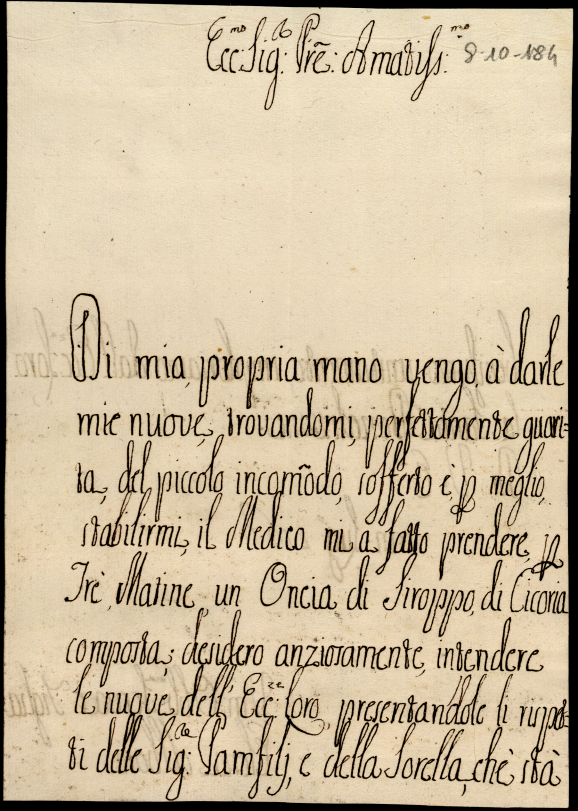 Ecc:mo Sig:re Prē: Amatiss:mo 8-10-184
Di mia, propria mano vengo, à darle
mie nuove, trovandomi, perfettamente guari=
ta, del piccolo incom̃odo, sofferto e, p meglio,
stabilirmi, il Medico mi a fatto prendere, p
Trè, Matine, un Oncia di Siroppo, di Cicoria
composta; desidero anziosamente, intendere
le nuove dell' Ecc:ze loro, presentandole li rispet=
ti delle Sig:re Pamfilj, e della Sorella, chè stà